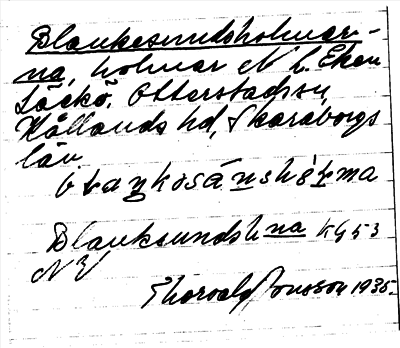 Blankesundsholmar-
na, holmar N L. Eken
Läckö, Otterstads sn,
Kållands hd, Skaraborgs
län
Blanksundsh na KG 53
NV
Thorvald Jonsson 1935.